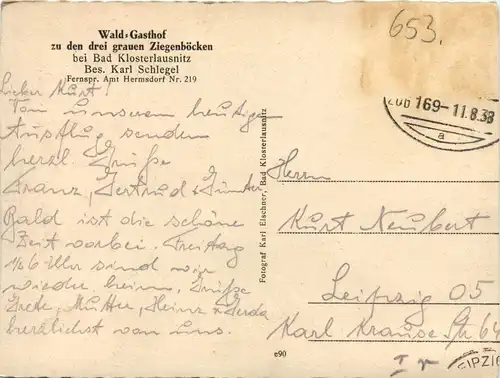 Wald-Gasthof
zu den drei grauen Ziegenböcken
bei Bad Klosterlausnitz
Bes. Karl Schlegel
Fernspr. Amt Hermsdorf Nr. 219
Lieber Kurt!
Von unserem heutigen
Ausflug senden
herzl. Grüße
Franz, Gertrud & Günter
Bald ist die schöne
Zeit vorbei. Freitag
1/2 6 Uhr sind wir
wieder heim. Grüße
Grete, Mutter, Heinz & Gerda
herzlichst von uns.
Fotograf Karl Elschner, Bad Klosterlausnitz
e90
653.
ZUG 169 - 11.8.38
a
Herrn
Kurt Neubert
Leipzig O5
Karl Krause Str 64
I r
LEIPZIG